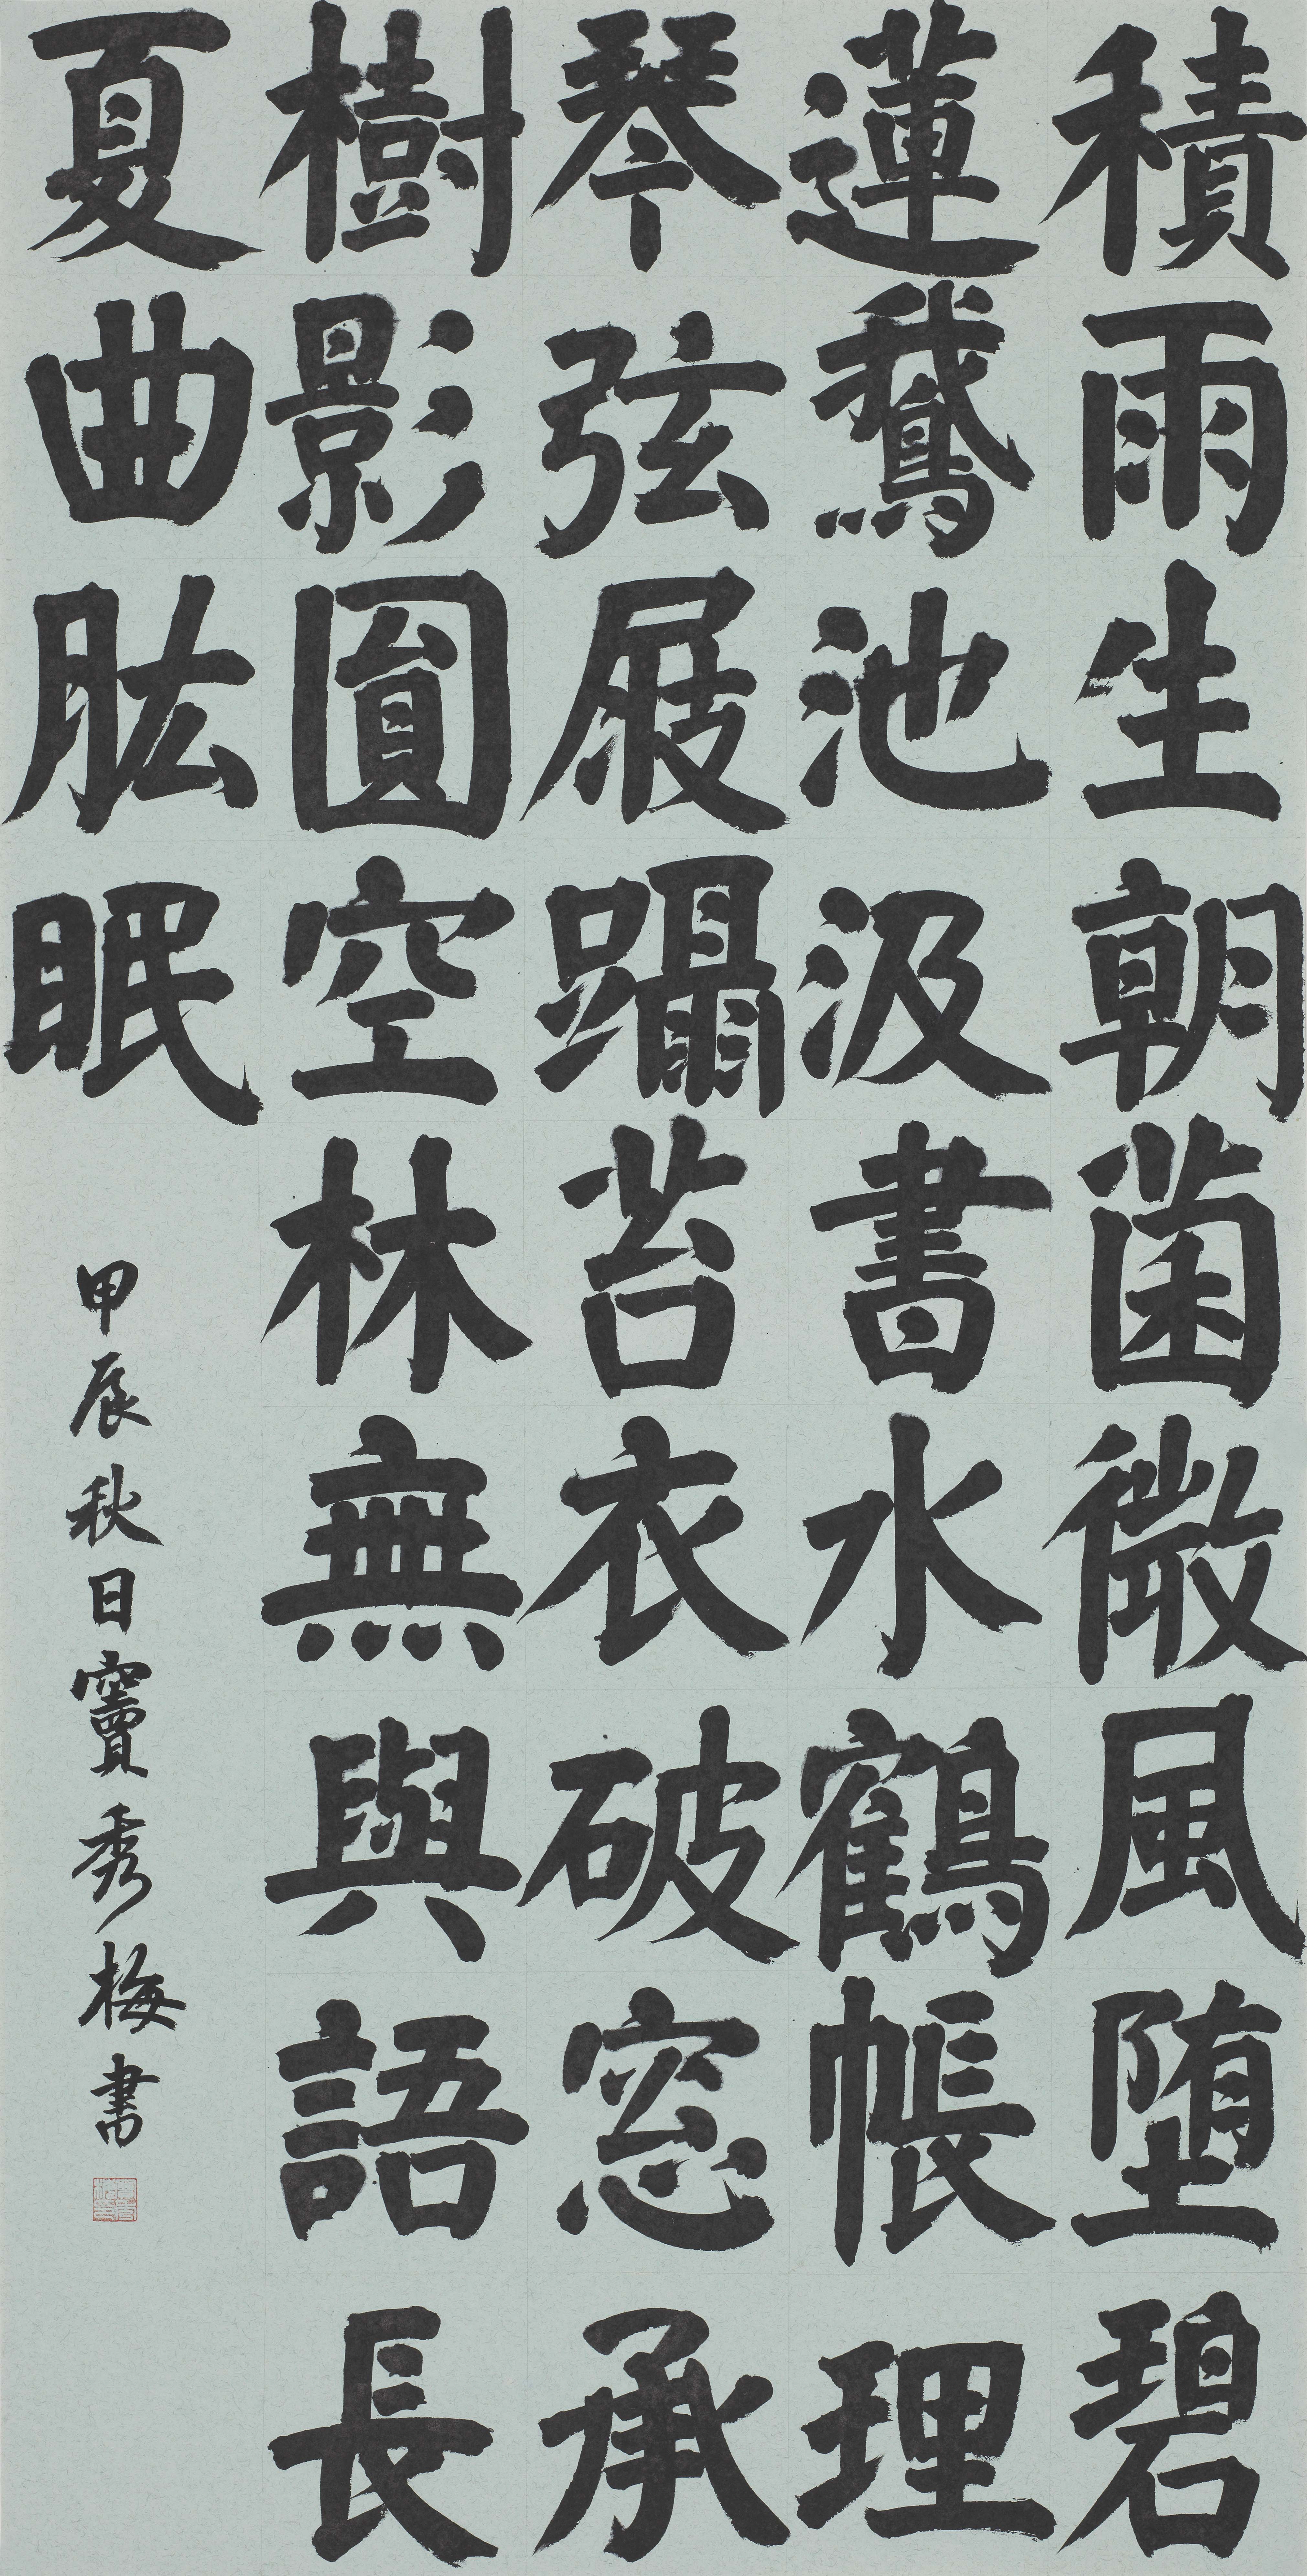 積雨生朝菌微風堕碧
蓮鵞池汲書水鶴帳理
琴弦屐躡苔衣破窓承
樹影圓空林無與語長
夏曲肱眠
甲辰秋日竇秀梅書